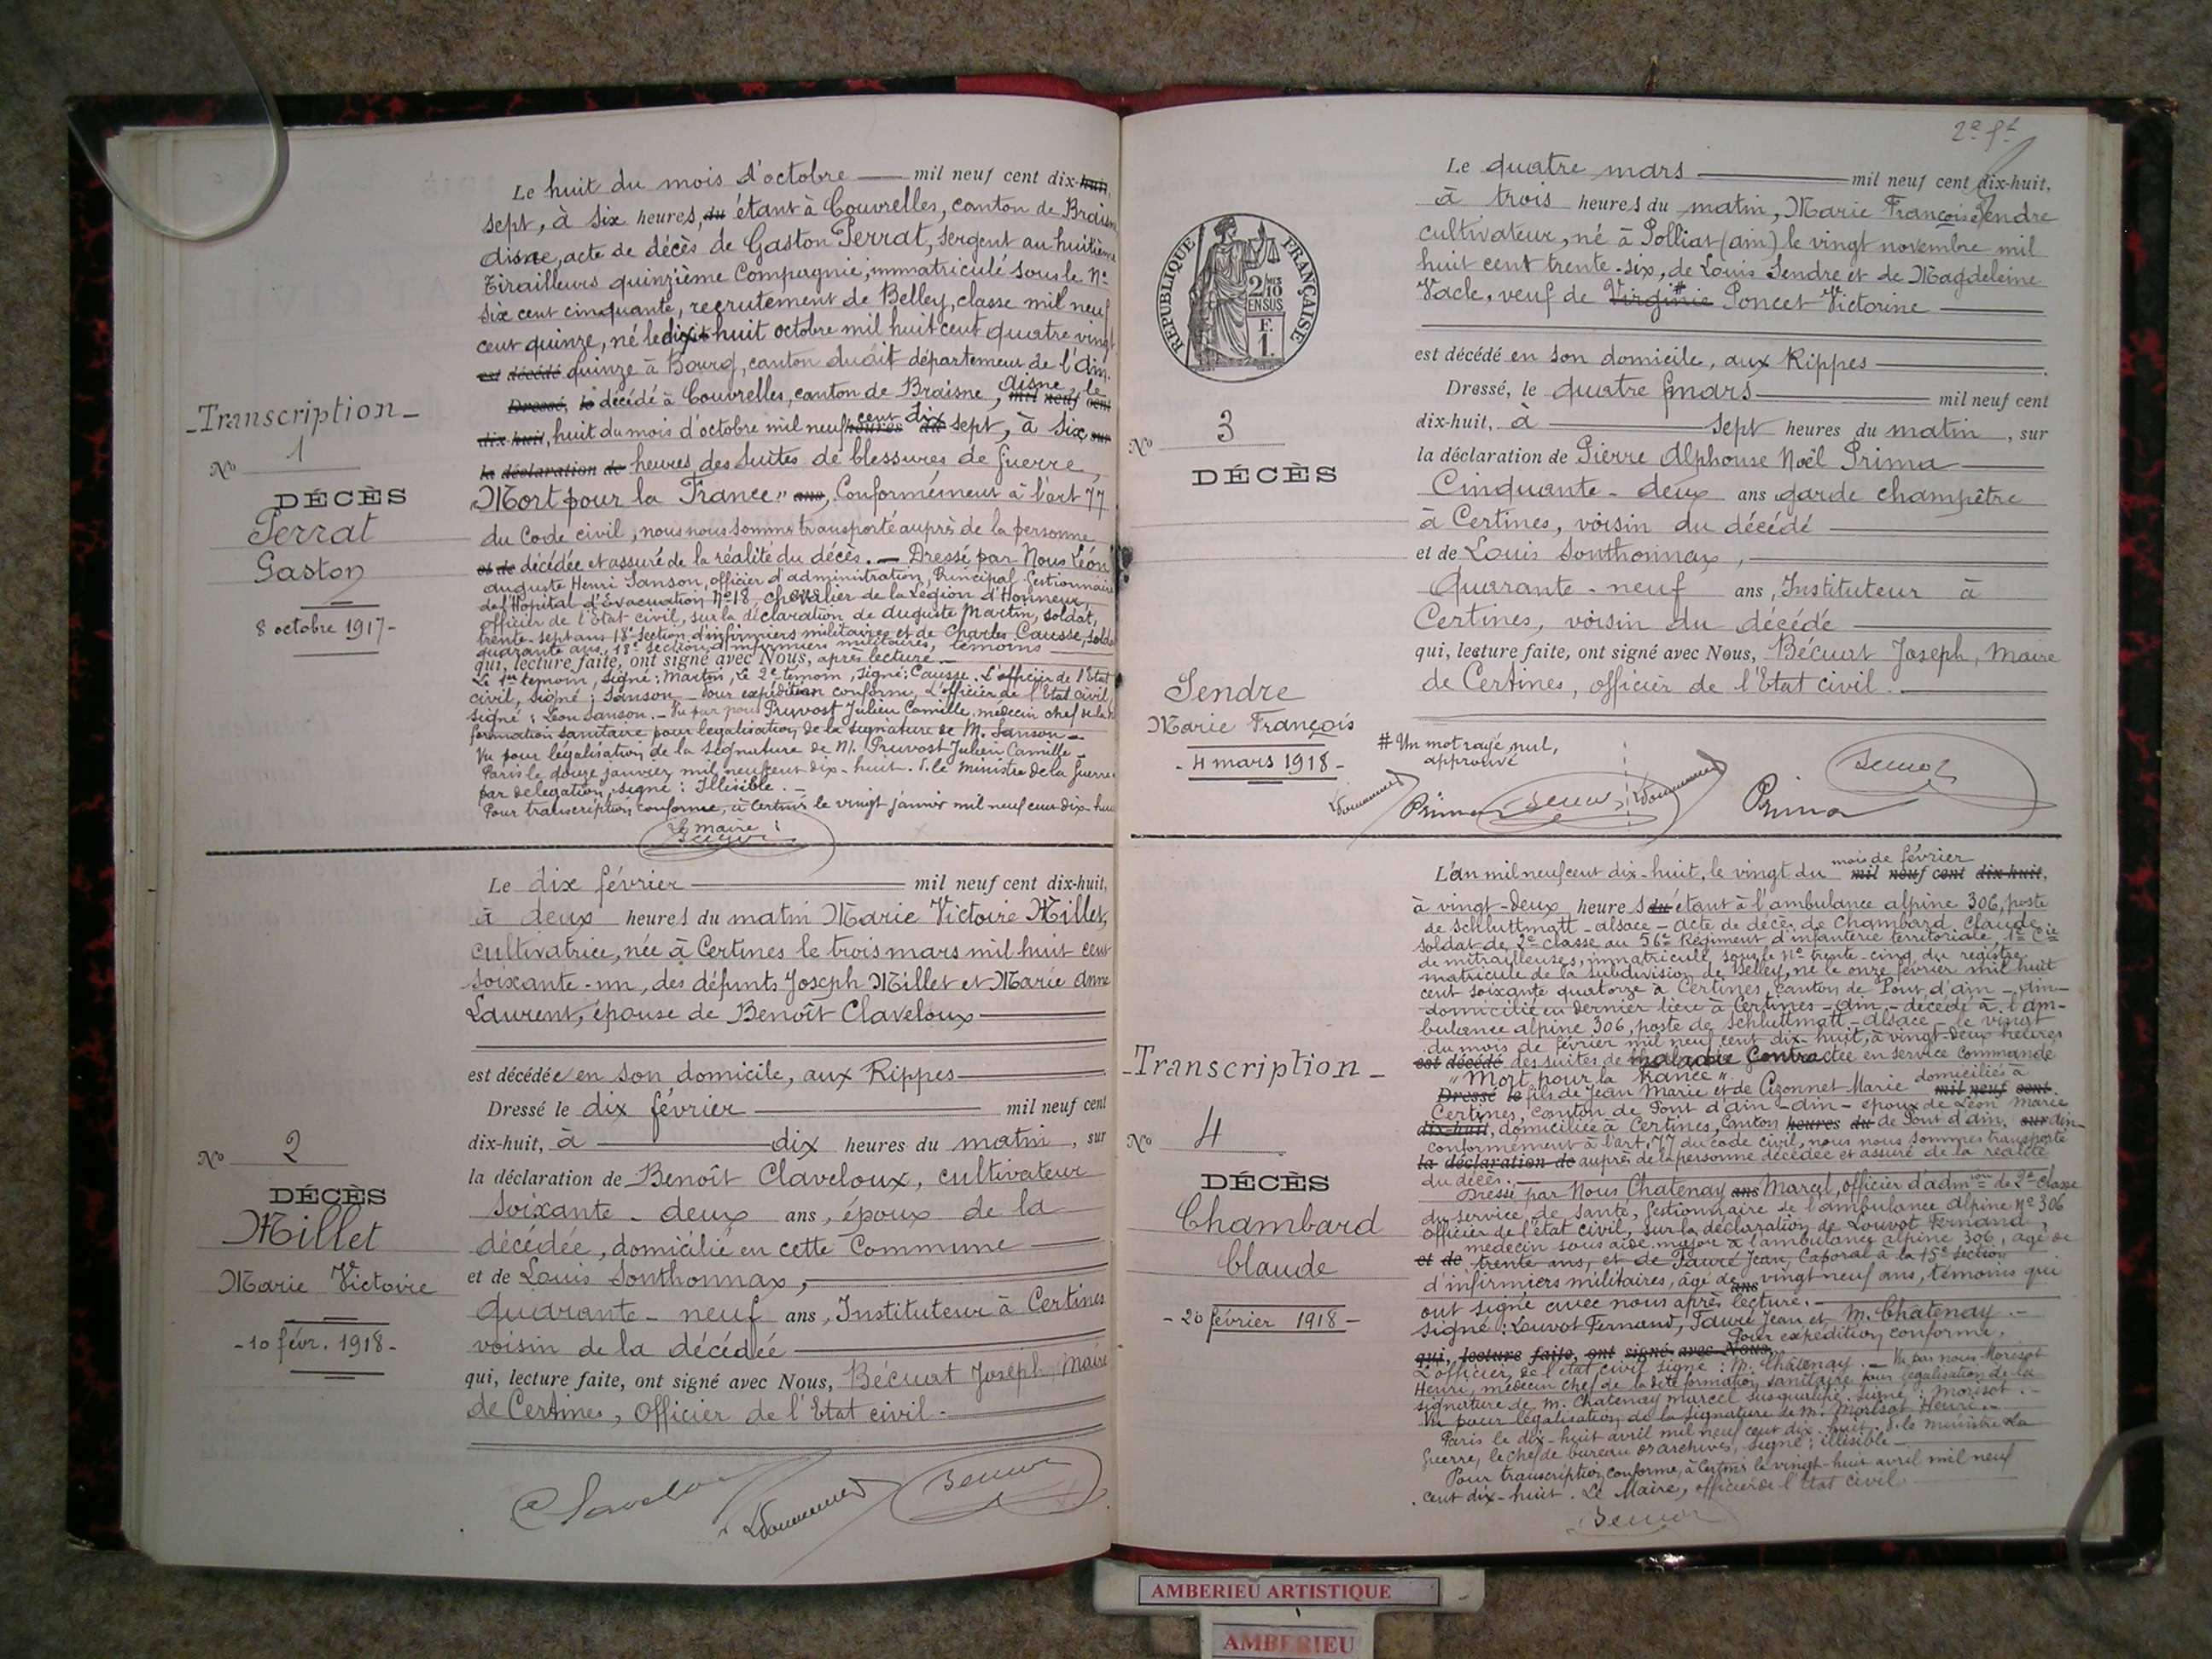 Le huit du mois d'octobre — mil neuf cent dix-huit,
sept, à six heures, du étant à Couvrelles, canton de Braisne
Aisne, acte de décès de Gaston Perrat, sergent au huitième
Tirailleurs quinzième Compagnie, immatriculé sous le No
six cent cinquante, recrutement de Belley, classe mil neuf
cent quinze, né le dix-huit octobre mil huit cent quatre vingt
est décédé quinze à Bourg, canton dudit département de l'Ain.
Dressé, le décédé à Couvrelles, canton de Braisne, Aisne, le mil neuf cent
dix-huit, huit du mois d'octobre mil neuf cent dix heures du sept, à six sur
la déclaration de heures, des suites de blessures de guerre,
Mort pour la France" ans, Conformément à l'art 77
du Code civil, nous nous sommes transporté auprès de la personne
et de décédée et assuré de la réalité du décès. — Dressé par Nous Léon
Auguste Henri Sanson, officier d'administration, Principal Gestionnaire
de l'Hôpital d'Evacuation No 18, chevalier de la Légion d'Honneur,
officier de l'Etat civil, sur la déclaration de Auguste Martin, soldat,
trente-sept ans 18e Section d'infirmiers militaires et de Charles Causse, soldat
quarante ans, 18e section d'infirmiers militaires, témoins —
qui, lecture faite, ont signé avec Nous, après lecture. —
Le 1er témoin, signé: Martin, Le 2e témoin, signé: Causse. L'officier de l'Etat
civil, signé: Sanson — Pour expédition conforme, L'officier de l'Etat civil,
signé: Léon Sanson. — Vu par nous Pruvost Julien Camille, médecin chef de la
formation sanitaire pour légalisation de la signature de M. Sanson —
Vu pour légalisation de la signature de M. Pruvost Julien Camille —
Paris le douze janvier mil neuf cent dix-huit. P. le ministre de la guerre
par délégation, signé: Illisible. —
Pour transcription conforme, à Certines le vingt janvier mil neuf cent dix-huit
Le maire:
-Transcription-
No 1
DÉCÈS
Perrat
Gaston
8 octobre 1917-
Le dix février — mil neuf cent dix-huit,
à deux heures du matin Marie Victoire Millet,
cultivatrice, née à Certines le trois mars mil huit cent
soixante-un, des défunts Joseph Millet et Marie Anne
Laurent, épouse de Benoît Claveloux —
est décédée en son domicile, aux Rippes —
Dressé le dix février — mil neuf cent
dix-huit, à — dix heures du matin, sur
la déclaration de Benoît Claveloux, cultivateur
soixante-deux ans, époux de la
décédée, domicilié en cette Commune —
et de Louis Sonthonnax, —
quarante-neuf ans, Instituteur à Certines
voisin de la décédée —
qui, lecture faite, ont signé avec Nous, Bécuat Joseph, Maire
de Certines, Officier de l'Etat civil. —
No 2
DÉCÈS
Millet
Marie Victoire
-10 févr. 1918-
2e ft
Le quatre mars — mil neuf cent dix-huit,
à trois heures du matin, Marie François Sendre
cultivateur, né à Polliat (Ain) le vingt novembre mil
huit cent trente-six, de Louis Sendre et de Magdeleine
Vacle, veuf de Virginie # Poncet Victorine —
est décédé en son domicile, aux Rippes —
Dressé, le quatre mars — mil neuf cent
dix-huit, à — sept heures du matin, sur
la déclaration de Pierre Alphonse Noël Prima —
Cinquante-deux ans garde champêtre
à Certines, voisin du décédé —
et de Louis Sonthonnax, —
quarante-neuf ans, Instituteur à
Certines, voisin du décédé —
qui, lecture faite, ont signé avec Nous, Bécuat Joseph, Maire
de Certines, officier de l'Etat civil. —
# Un mot rayé nul,
approuvé
Prima
Prima
REPUBLIQUE FRANÇAISE
2/10
EN SUS
F.
1.
No 3
DÉCÈS
Sendre
Marie François
-4 mars 1918-
L'an mil neuf cent dix-huit, le vingt du mois de février mil neuf cent dix-huit,
à vingt-deux heures du étant à l'ambulance alpine 306, poste
de Schluttmatt - Alsace - acte de décès de Chambard Claude
soldat de 2e classe au 56e Régiment d'infanterie territoriale 1e Cie
de mitrailleuses, immatriculé sous le No trente-cinq du registre
matricule de la subdivision de Belley, né le onze février mil huit
cent soixante quatorze à Certines, canton de Pont d'Ain - Ain -
domicilié en dernier lieu à Certines - Ain - décédé à l'am-
bulance alpine 306, poste de Schluttmatt - Alsace - le vingt
du mois de février mil neuf cent dix-huit, à vingt-deux heures
est décédé des suites de maladie Contractée en service commandé
"Mort pour la France"
Dressé le fils de Jean Marie et de Cizonnet Marie domiciliés à mil neuf cent
Certines, canton de Pont d'Ain - Ain - époux de Léon Marie
dix-huit, domiciliée à Certines, Canton heures du de Pont d'Ain, sur Ain -
conformément à l'art. 77 du code civil, nous nous sommes transporté
la déclaration de auprès de la personne décédée et assuré de la réalité
du décès. —
Dressé par Nous Chatenay ans Marcel, officier d'admion de 2e classe
du service de santé, gestionnaire de l'ambulance Alpine No 306
officier de l'état civil, sur la déclaration de Louvot Fernand,
médecin sous aide major à l'ambulance alpine 306, âgé de
et de trente ans, et de Fauré Jean, Caporal à la 15e section
d'infirmiers militaires, âgé de ans vingt neuf ans, témoins qui
ont signé avec nous après lecture. —
signé: Louvot Fernand, Fauré Jean et M. Chatenay. —
Pour expédition conforme,
qui, lecture faite, ont signé avec Nous,
L'officier de l'état civil signé: M. Chatenay. — Vu par nous Morisot
Henri, médecin chef de la dite formation sanitaire pour légalisation de la
signature de M. Chatenay Marcel susqualifié. signé: Morisot. —
Vu pour légalisation de la signature de M. Morisot Henri. —
Paris le dix-huit avril mil neuf cent dix-huit. P. le ministre de la
Guerre, le chef de bureau des archives, signé: illisible —
Pour transcription conforme, à Certines le vingt-huit avril mil neuf
cent dix-huit. Le Maire, officier de l'état civil
-Transcription-
No 4
DÉCÈS
Chambard
Claude
-20 février 1918-
AMBERIEU ARTISTIQUE
AMBERIEU